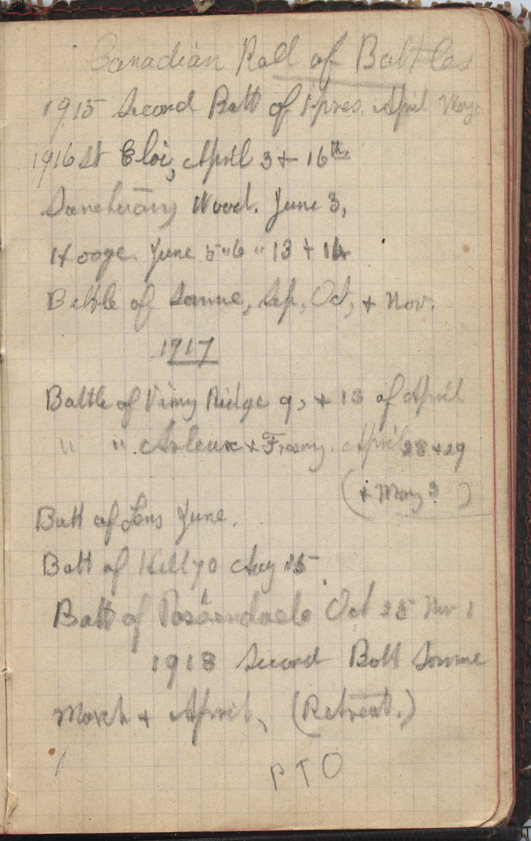 Canadian Roll of Battles
1915 Second Batt of Ypres. April May
1916 St Eloi, April 3 + 16th
Sanctuary Wood. June 3,
Hooge. June 5 " 6 " 13 + 14
Battle of Somme, Sep, Oct, + Nov.
1917
Battle of Vimy Ridge 9, + 13 of April
" " Arleux + Fresny. April 28 + 29
(+ May 3)
Batt of Lens June.
Batt of Hill 70 Aug 15
Batt of Passendaele Oct 25 Nov 1
1918 Second Batt Somme
March + April, (Retreat.)
PTO